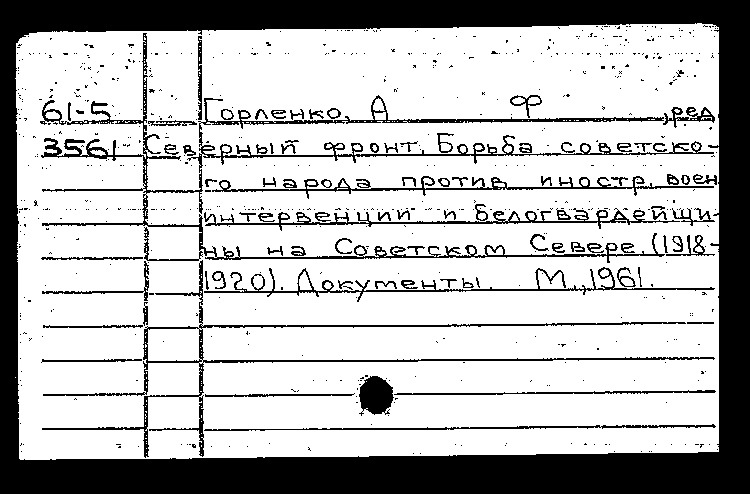 61-5 Горленко, А Ф ,ред.
3561 Северный фронт. Борьба советско-
го народа против иностр. воен
интервенции и белогвардейщи-
ны на Советском Севере. (1918-
1920). Документы. М., 1961.